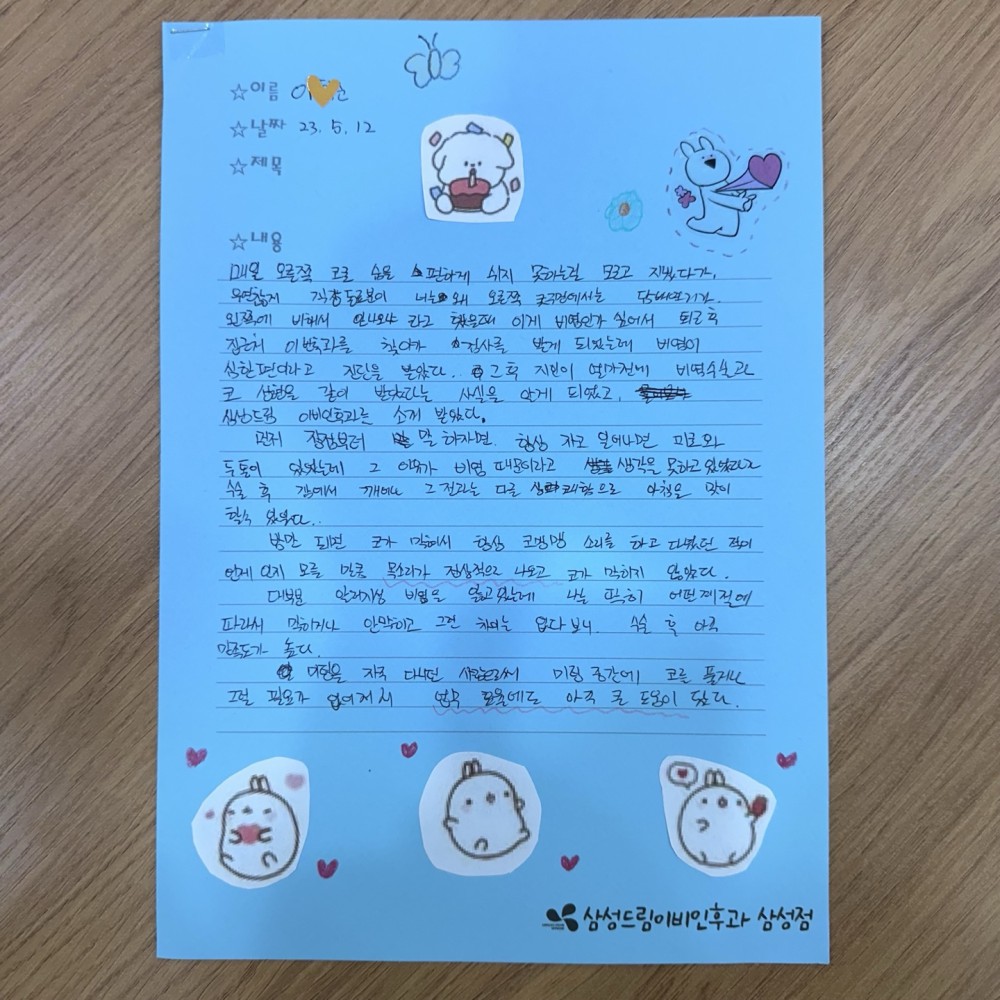 ☆이름 이
☆날짜 23. 5. 12
☆제목
☆내용
매일 오른쪽 코로 숨을 편하게 쉬지 못하는걸 모르고 지냈다가,
우연찮게 직장동료분이 너는 왜 오른쪽 콧구멍에서는 담배연기가
왼쪽에 비해서 안나오냐 라고 했을때 이게 비염인가 싶어서 퇴근후
집근처 이빈후과를 찾아가 검사를 받게 되었는데 비염이
심한편이라고 진단을 받았다. 그 후 지인이 몇년전에 비염수술과
코 성형을 같이 받았다는 사실을 알게 되었고,
삼성드림 이비인후과를 소개 받았다.
먼저 장점부터 말 하자면, 항상 자고 일어나면 피로와
두통이 있었는데 그 이유가 비염 때문이라고 생각을 못하고 있었다가
수술 후 잠에서 깨어나 그 전과는 다른 상쾌함으로 아침을 맞이
할수 있었다..
밤만 되면 코가 막혀서 항상 코맹맹 소리를 하고 다녔던 적이
언제 인지 모를 만큼 목소리가 정상적으로 나오고 코가 막히지 않았다.
대부분 알러지성 비염을 앓고있는데 나는 딱히 어떤계절에
따라서 막히거나 안막히고 그런 차이는 없다보니, 수술 후 아주
만족도가 높다.
미팅을 자주 다니던 사람으로서 미팅 중간에 코를 풀거나
그럴 필요가 없어져서 업무 효율에도 아주 큰 도움이 됐다.
삼성드림이비인후과 삼성점